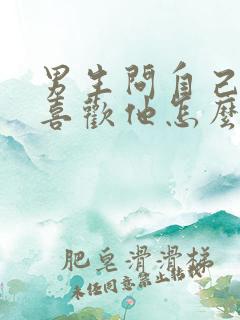 男生問自己
喜歡他怎麼
肥皂滑滑梯
未任同意禁止转载